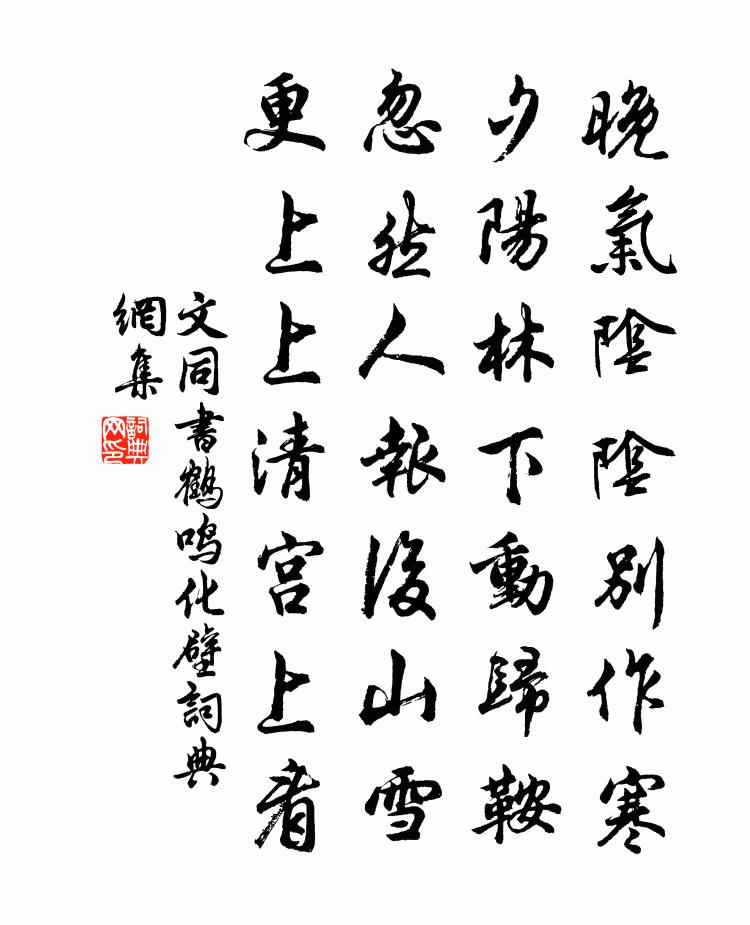 晚氣陰陰別作寒
夕陽林下動歸鞍
忽然人報後山雪
更上上清宮上看
文同書鶴鳴化壁詞典
網集
詞典
网印